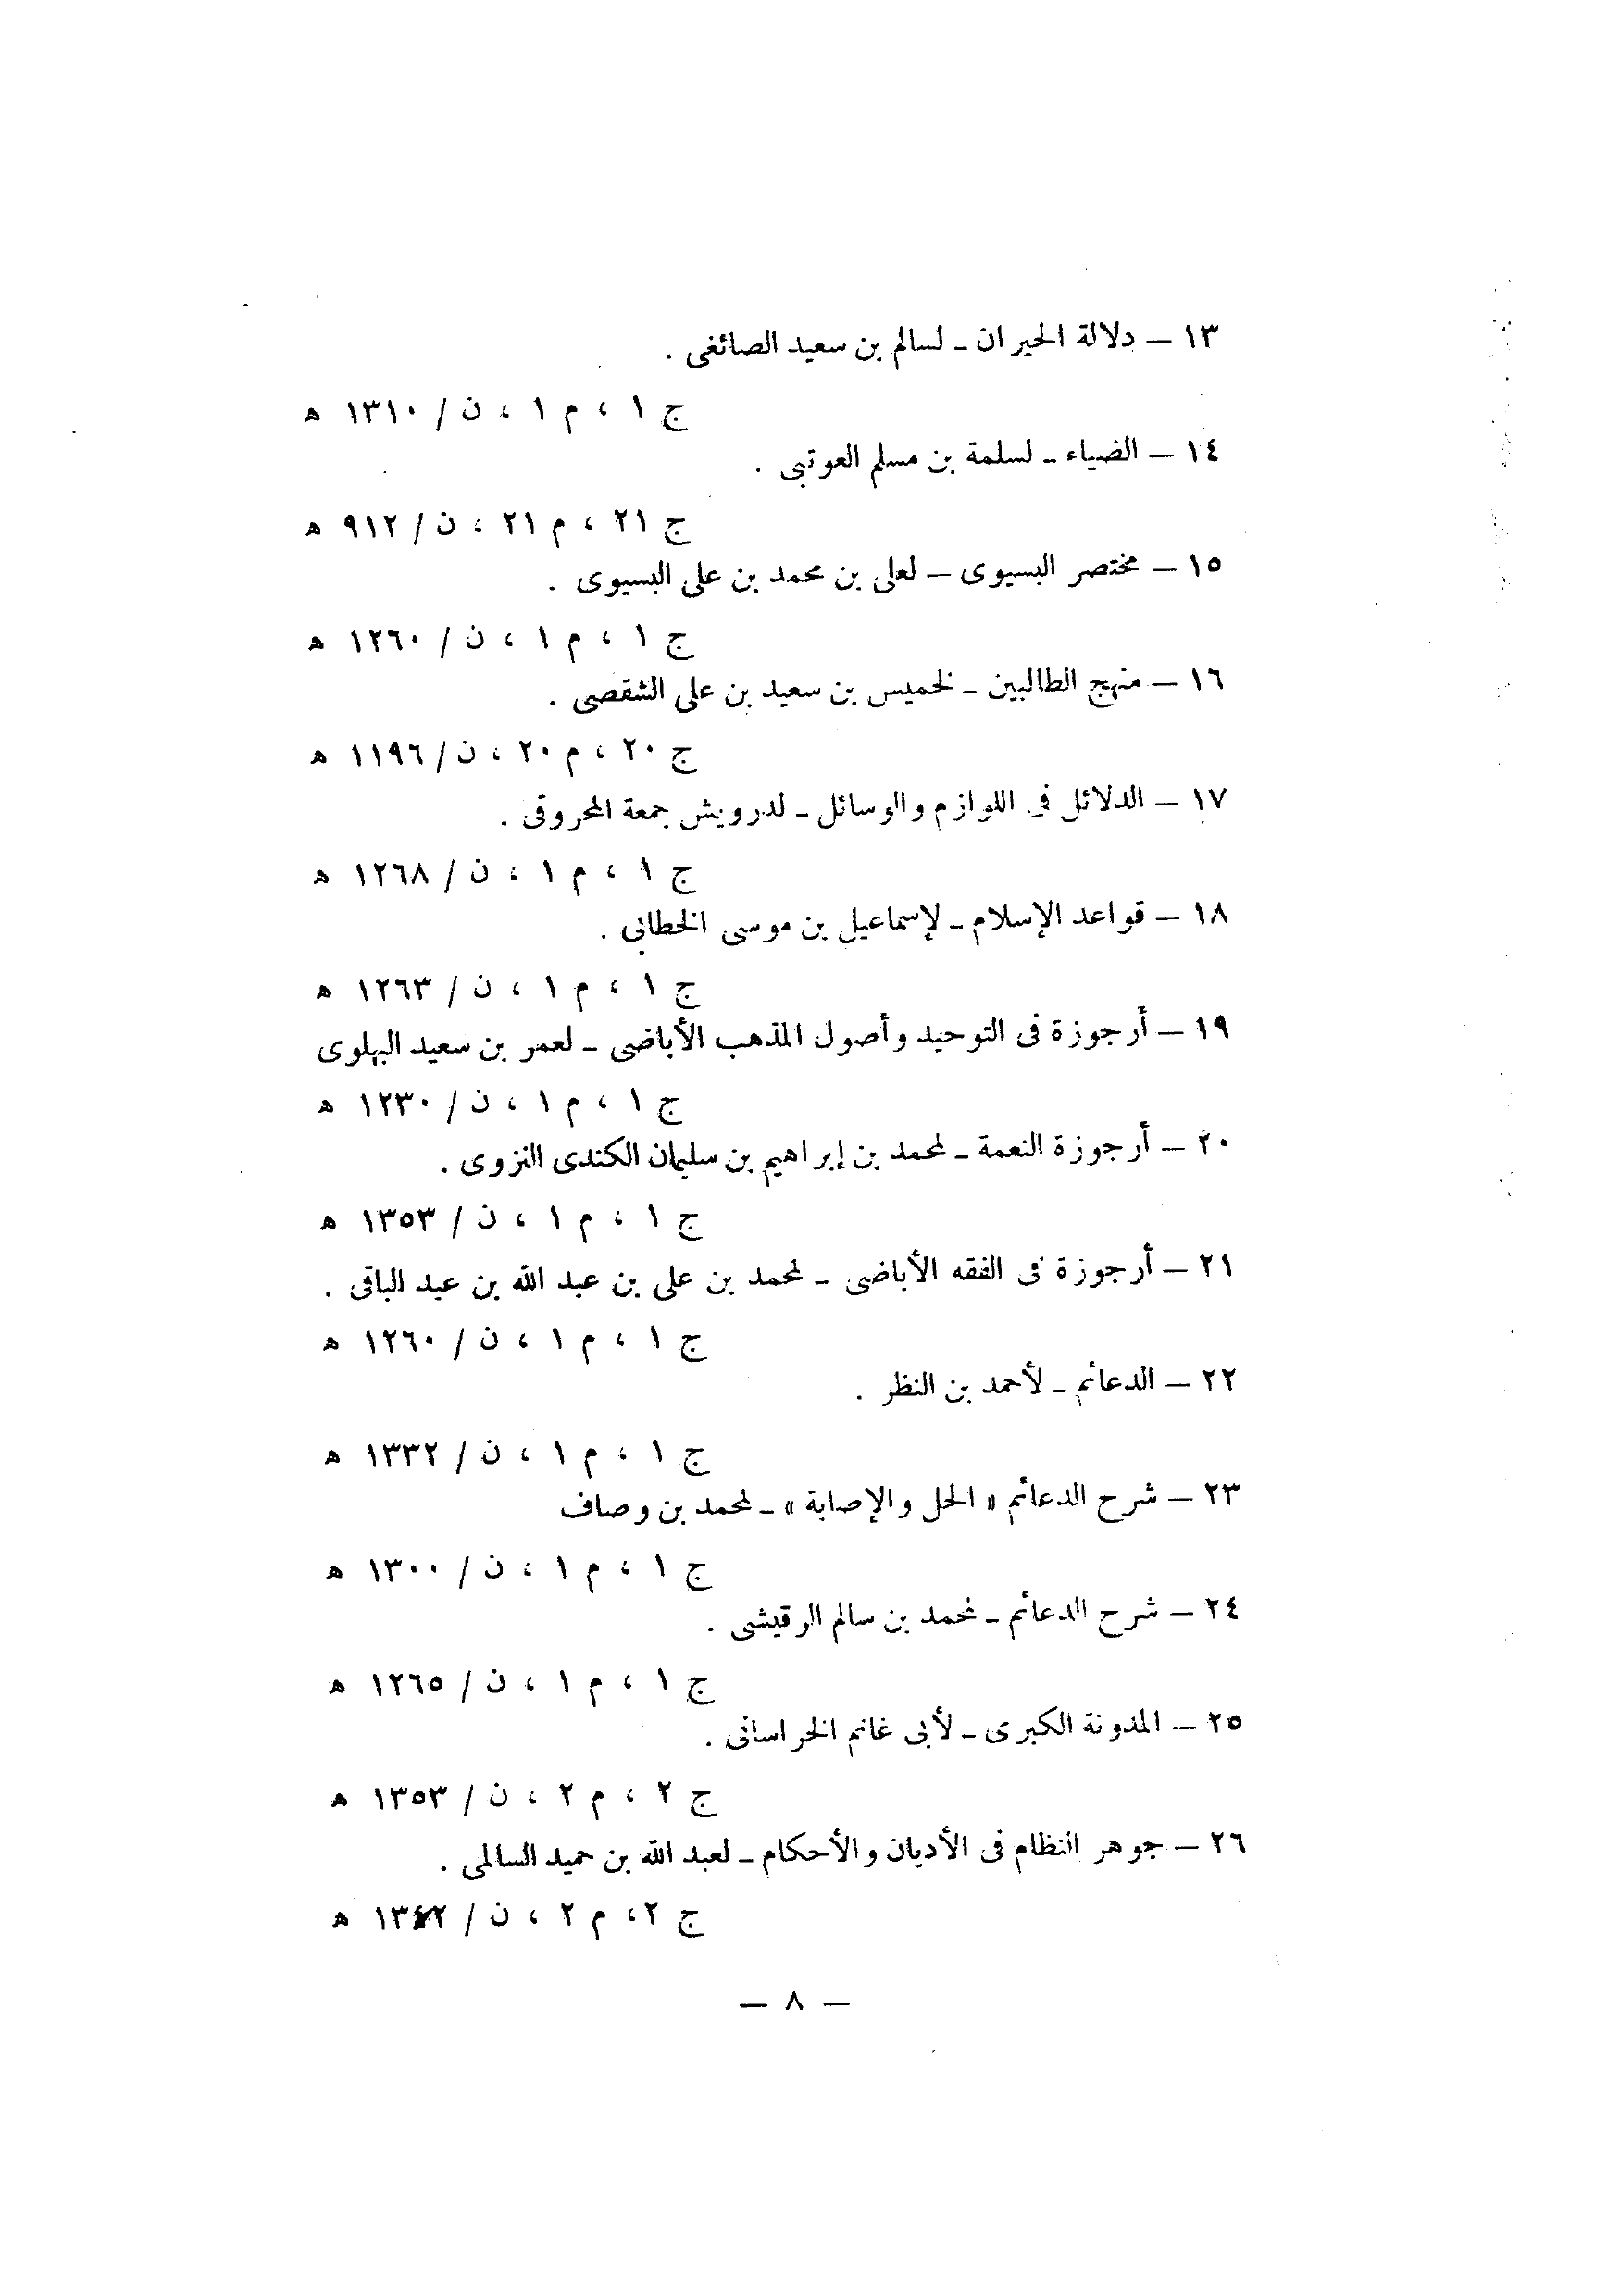 ١٣ — دلالة الحيران ـ لسالم بن سعيد الصائغى .
ج ١ ، م ١ ، ن / ١٣١٠ ه
١٤ — الضياء ـ لسلمة بن مسلم العوتبى .
ج ٢١ ، م ٢١ ، ن / ٩١٢ ه
١٥ — مختصر البسيوى — لعلى بن محمد بن على البسيوى .
ج ١ ، م ١ ، ن / ١٢٦٠ ه
١٦ — منهج الطالبين ـ لخميس بن سعيد بن على الشقصى .
ج ٢٠ ، م ٢٠ ، ن / ١١٩٦ ه
١٧ — الدلائل فى اللوازم والوسائل ـ لدرويش جمعة المحروقى .
ج ١ ، م ١ ، ن / ١٢٦٨ ه
١٨ — قواعد الإسلام ـ لإسماعيل بن موسى الخطابى .
ج ١ ، م ١ ، ن / ١٢٦٣ ه
١٩ — أرجوزة فى التوحيد وأصول المذهب الأباضى ـ لعمر بن سعيد البهلوى
ج ١ ، م ١ ، ن / ١٢٣٠ ه
٢٠ — أرجوزة النعمة ـ لمحمد بن إبراهيم بن سليمان الكندى النزوى .
ج ١ ، م ١ ، ن / ١٣٥٣ ه
٢١ — أرجوزة فى الفقه الأباضى ـ لمحمد بن على بن عبد الله بن عبد الباقى .
ج ١ ، م ١ ، ن / ١٢٦٠ ه
٢٢ — الدعائم ـ لأحمد بن النظر .
ج ١ ، م ١ ، ن / ١٣٣٢ ه
٢٣ — شرح الدعائم « الحل والإصابة » ـ لمحمد بن وصاف
ج ١ ، م ١ ، ن / ١٣٠٠ ه
٢٤ — شرح الدعائم ـ لمحمد بن سالم الرقيشى .
ج ١ ، م ١ ، ن / ١٢٦٥ ه
٢٥ — المدونة الكبرى ـ لأبى غانم الخراسانى .
ج ٢ ، م ٢ ، ن / ١٣٥٣ ه
٢٦ — جوهر النظام فى الأديان والأحكام ـ لعبد الله بن حميد السالمى .
ج ٢ ، م ٢ ، ن / ه
— ٨ —